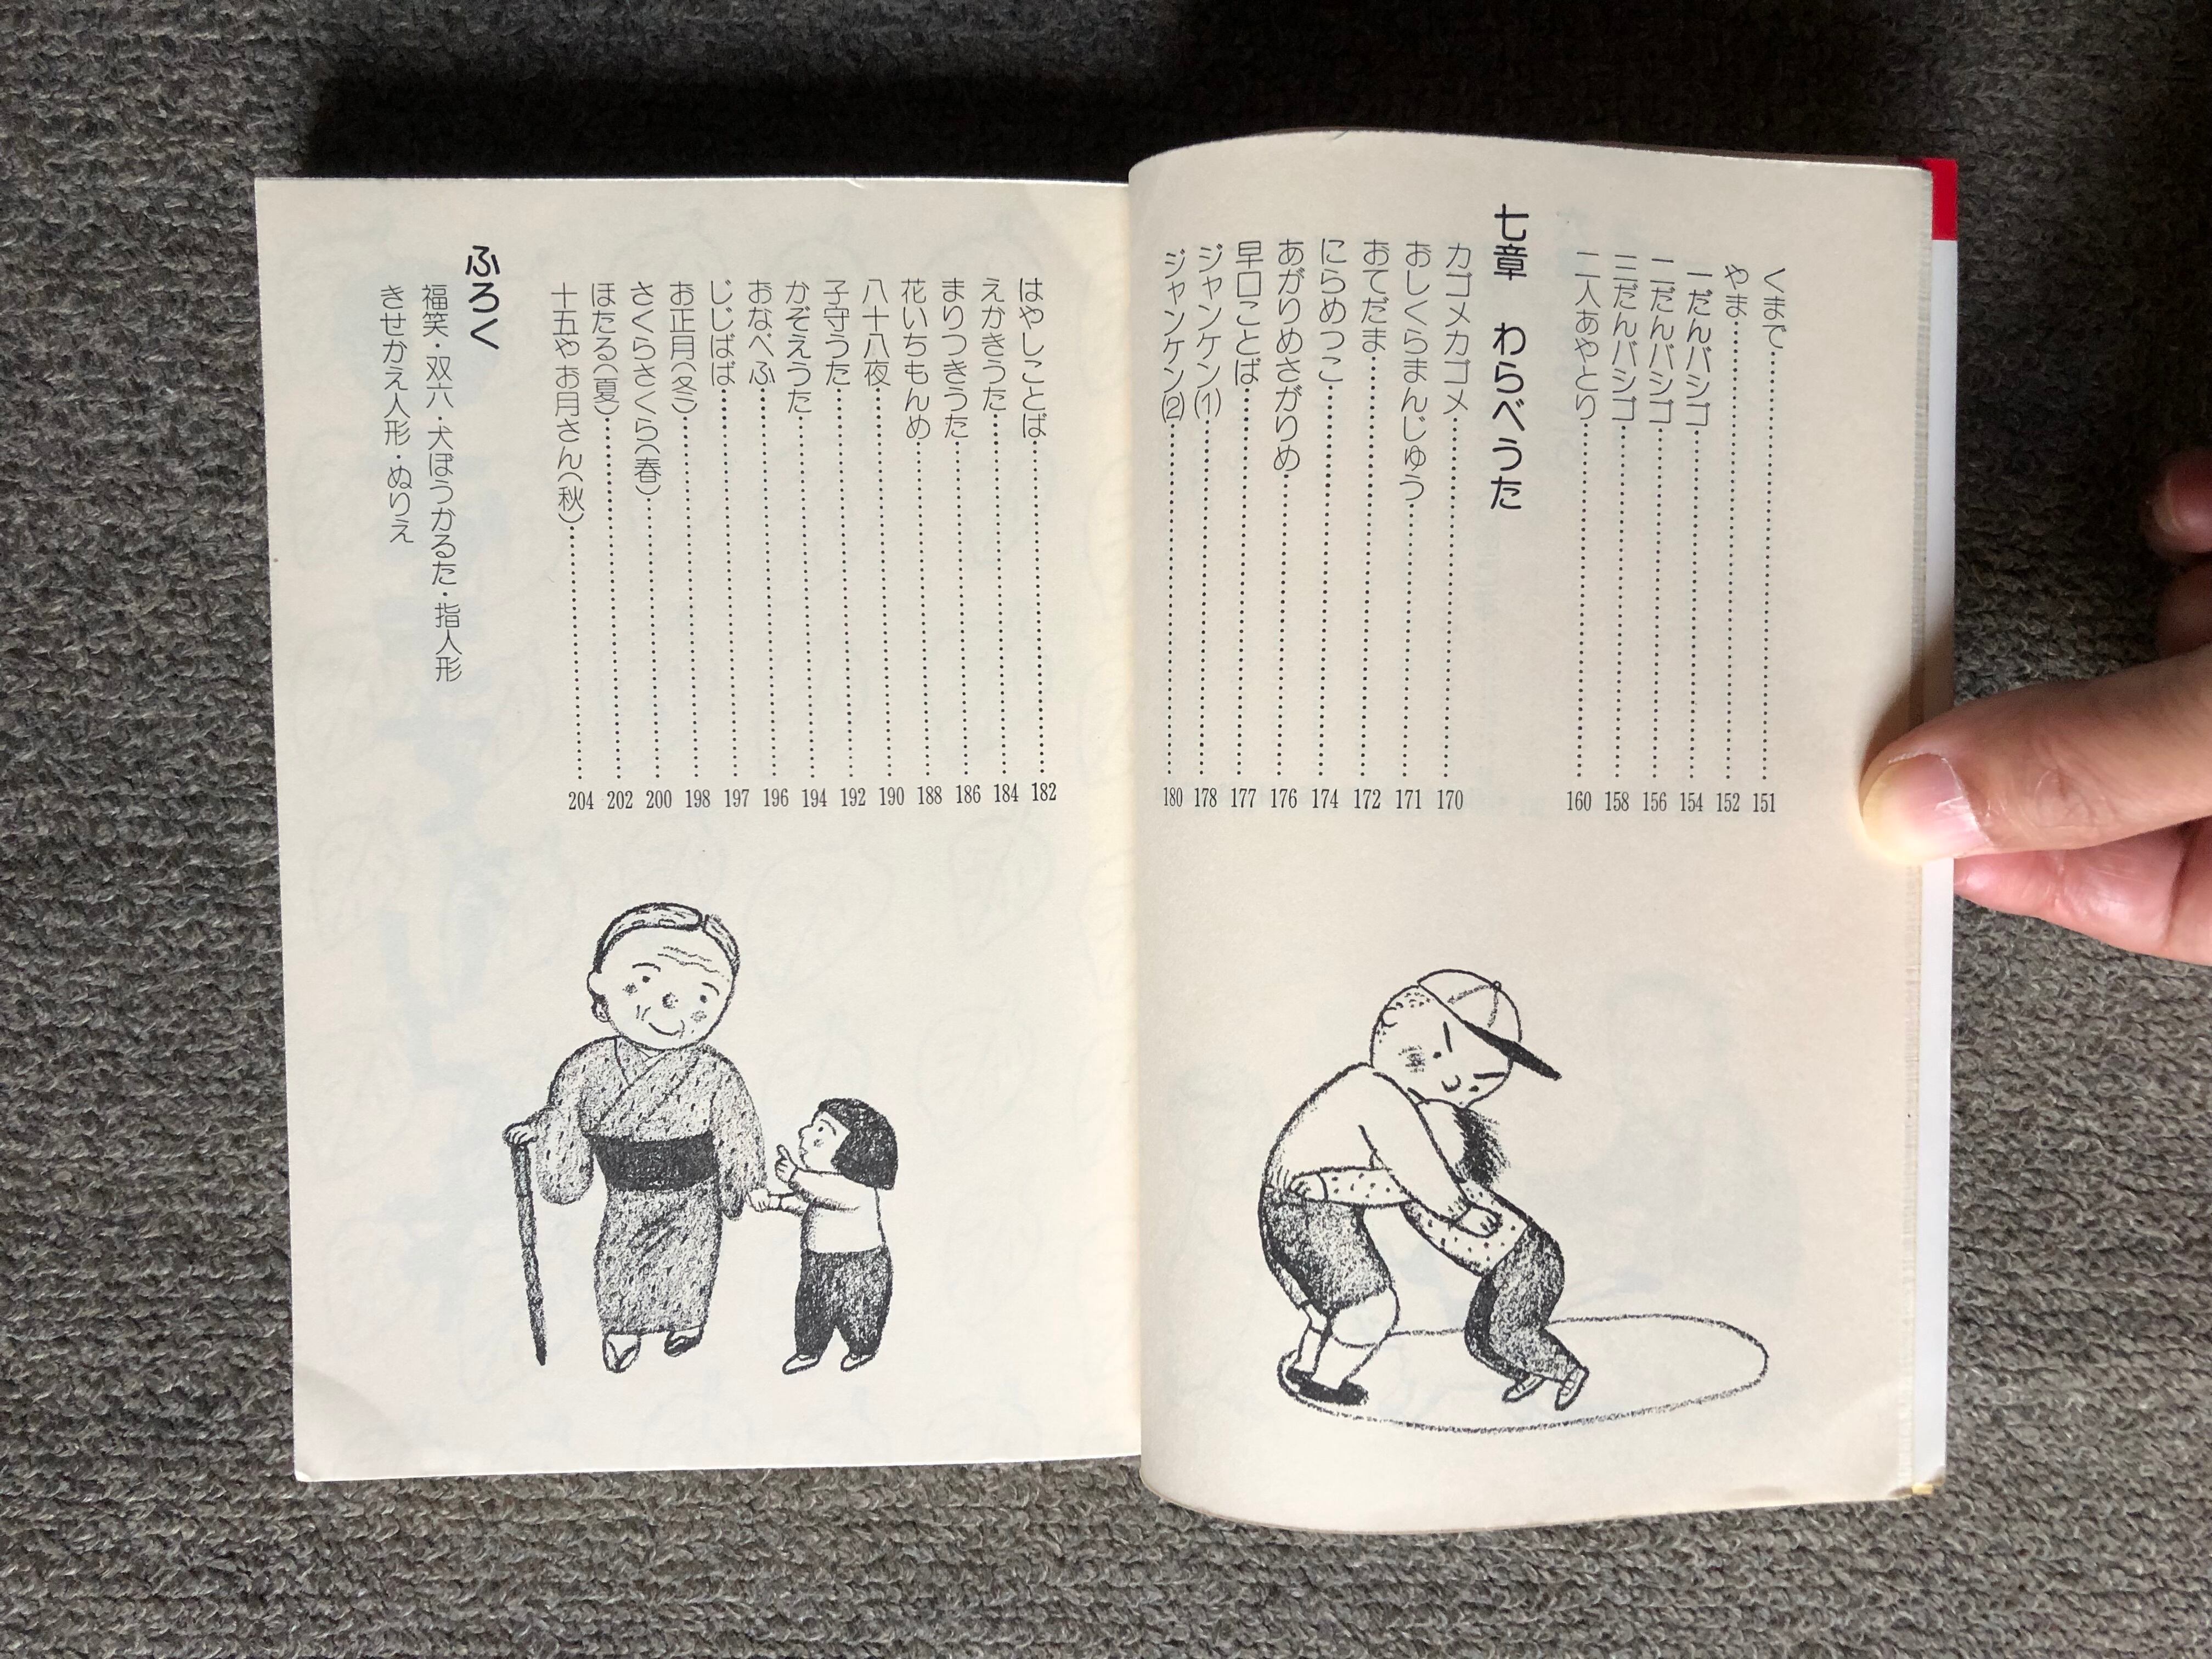 くまで……151
やま……152
一だんバシゴ……154
二だんバシゴ……156
三だんバシゴ……158
二人あやとり……160
七章 わらべうた
カゴメカゴメ……170
おしくらまんじゅう……171
おてだま……172
にらめっこ……174
あがりめさがりめ……176
早口ことば……177
ジャンケン(1)……178
ジャンケン(2)……180
はやしことば……182
えかきうた……184
まりつきうた……186
花いちもんめ……188
八十八夜……190
子守うた……192
かぞえうた……194
おなべふ……196
じじばば……197
お正月(冬)……198
さくらさくら(春)……200
ほたる(夏)……202
十五や お月さん(秋)……204
ふろく
福笑・双六・犬ぼうかるた・指人形
きせかえ人形・ぬりえ